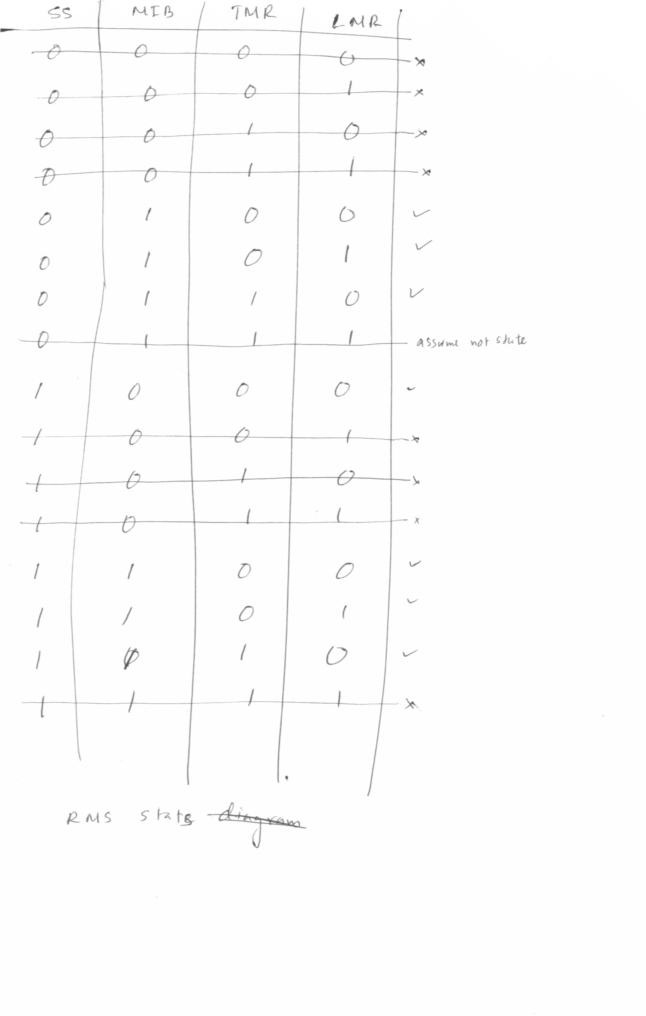 SS MIB TMR LMR
0 0 0 0 ×
0 0 0 1 ×
0 0 1 0 ×
0 0 1 1 ×
0 1 0 0 ✓
0 1 0 1 ✓
0 1 1 0 ✓
0 1 1 1 assume not state
1 0 0 0 ✓
1 0 0 1 ×
1 0 1 0 ×
1 0 1 1 ×
1 1 0 0 ✓
1 1 0 1 ✓
1 1 1 0 ✓
1 1 1 1 ×
RMS states diagram